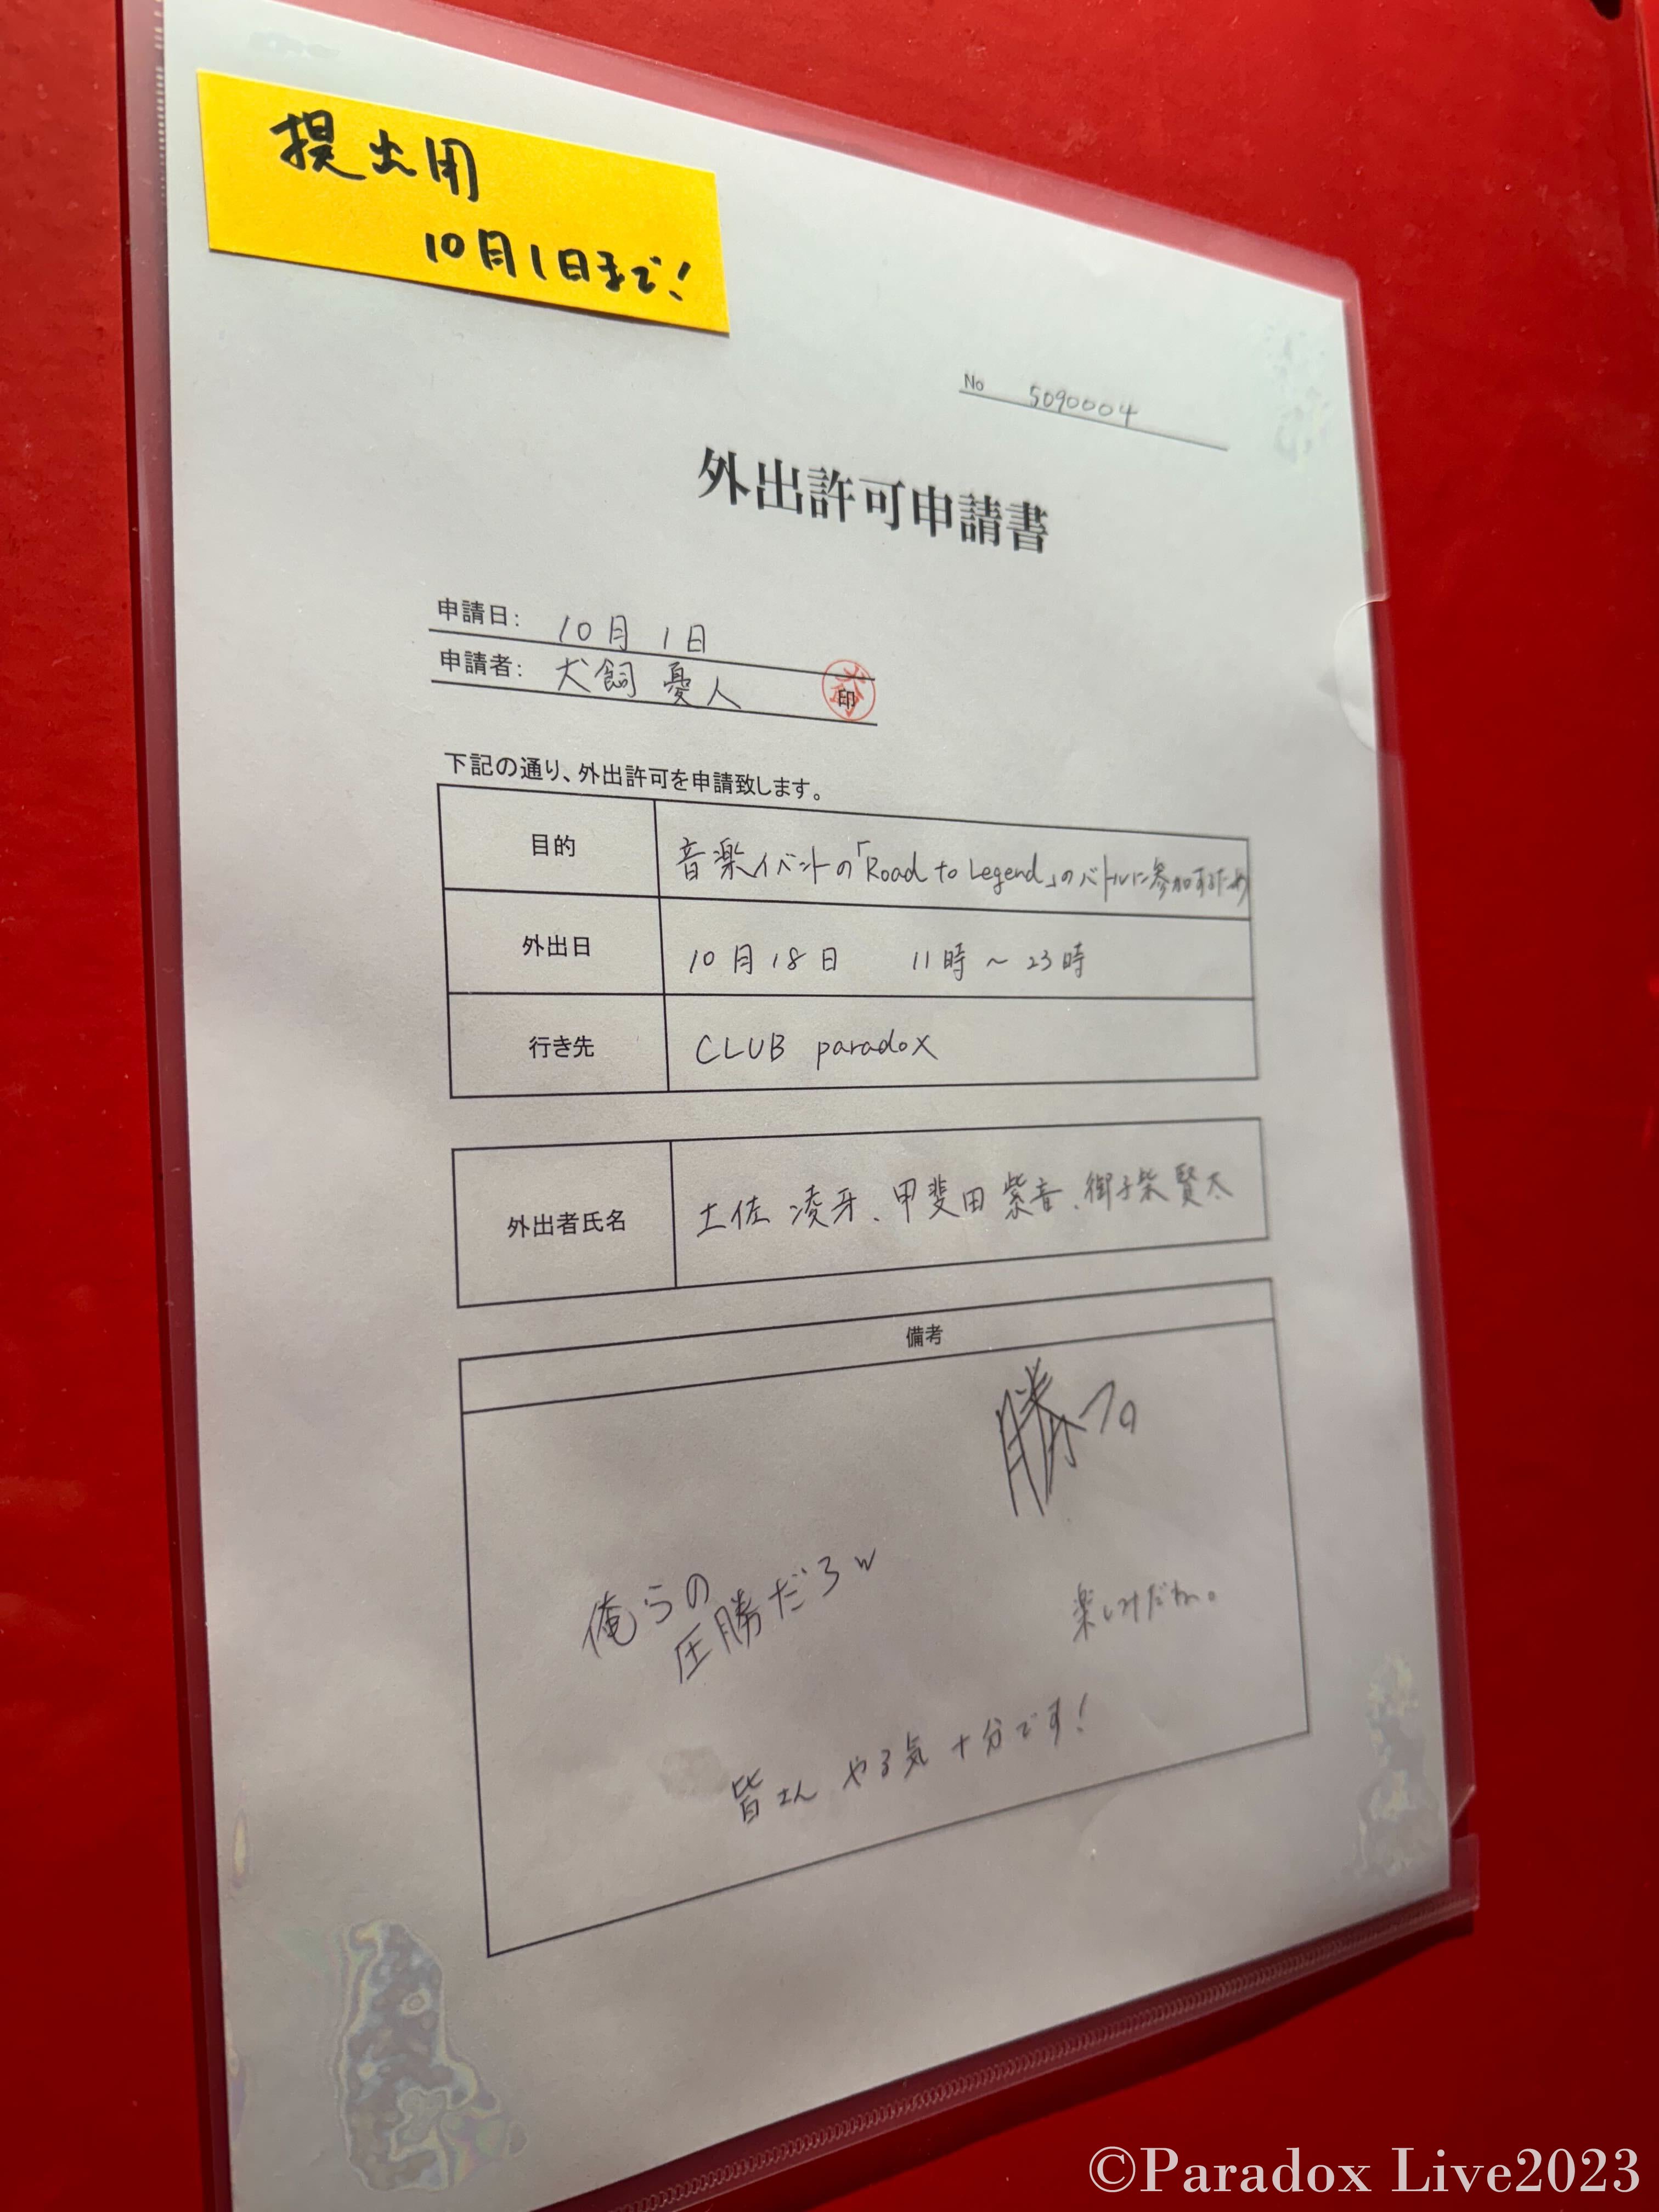 提出用
10月1日まで!
No 5090004
外出許可申請書
申請日: 10月1日
申請者: 犬飼 憂人 印
下記の通り、外出許可を申請致します。
目的 音楽イベントの「Road to Legend」のバトルに参加するため
外出日 10月18日 11時〜23時
行き先 CLUB paradox
外出者氏名 土佐 凌牙、甲斐田 紫音、御子柴 賢太
備考
勝つ。
俺らの
圧勝だろw
楽しみだね。
皆さん やる気 十分です!
©Paradox Live2023